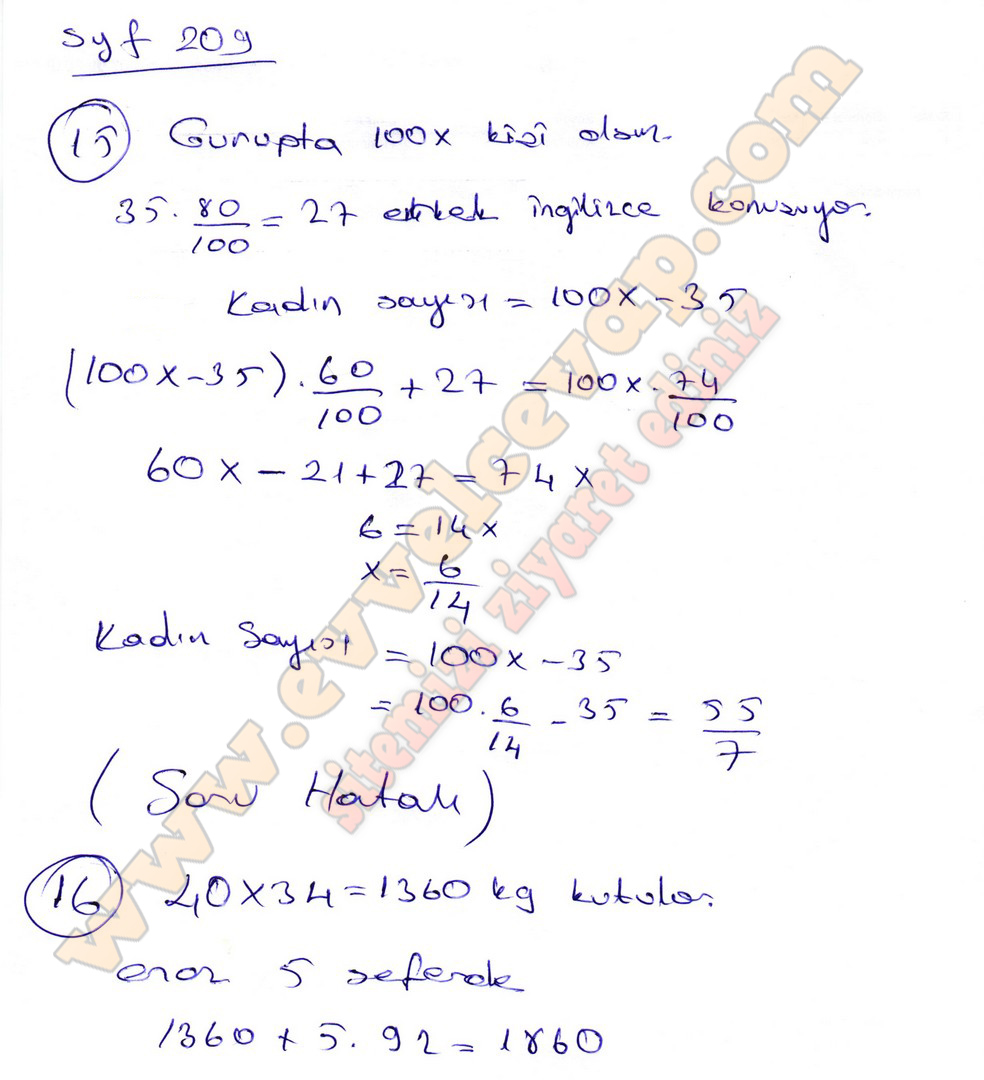 Syf 209
15 Gurupta 100x kişi olsun.
35 . 80/100 = 27 erkek ingilizce konuşuyor.
Kadın sayısı = 100x - 35
(100x - 35) . 60/100 + 27 = 100x . 74/100
60x - 21 + 27 = 74x
6 = 14x
x = 6/14
Kadın Sayısı = 100x - 35
= 100 . 6/14 - 35 = 55/7
(Soru Hatalı)
16 40 x 34 = 1360 kg kutular
enaz 5 seferde
1360 + 5 . 92 = 1860
www.evvelcevap.com
sitemizi ziyaret ediniz